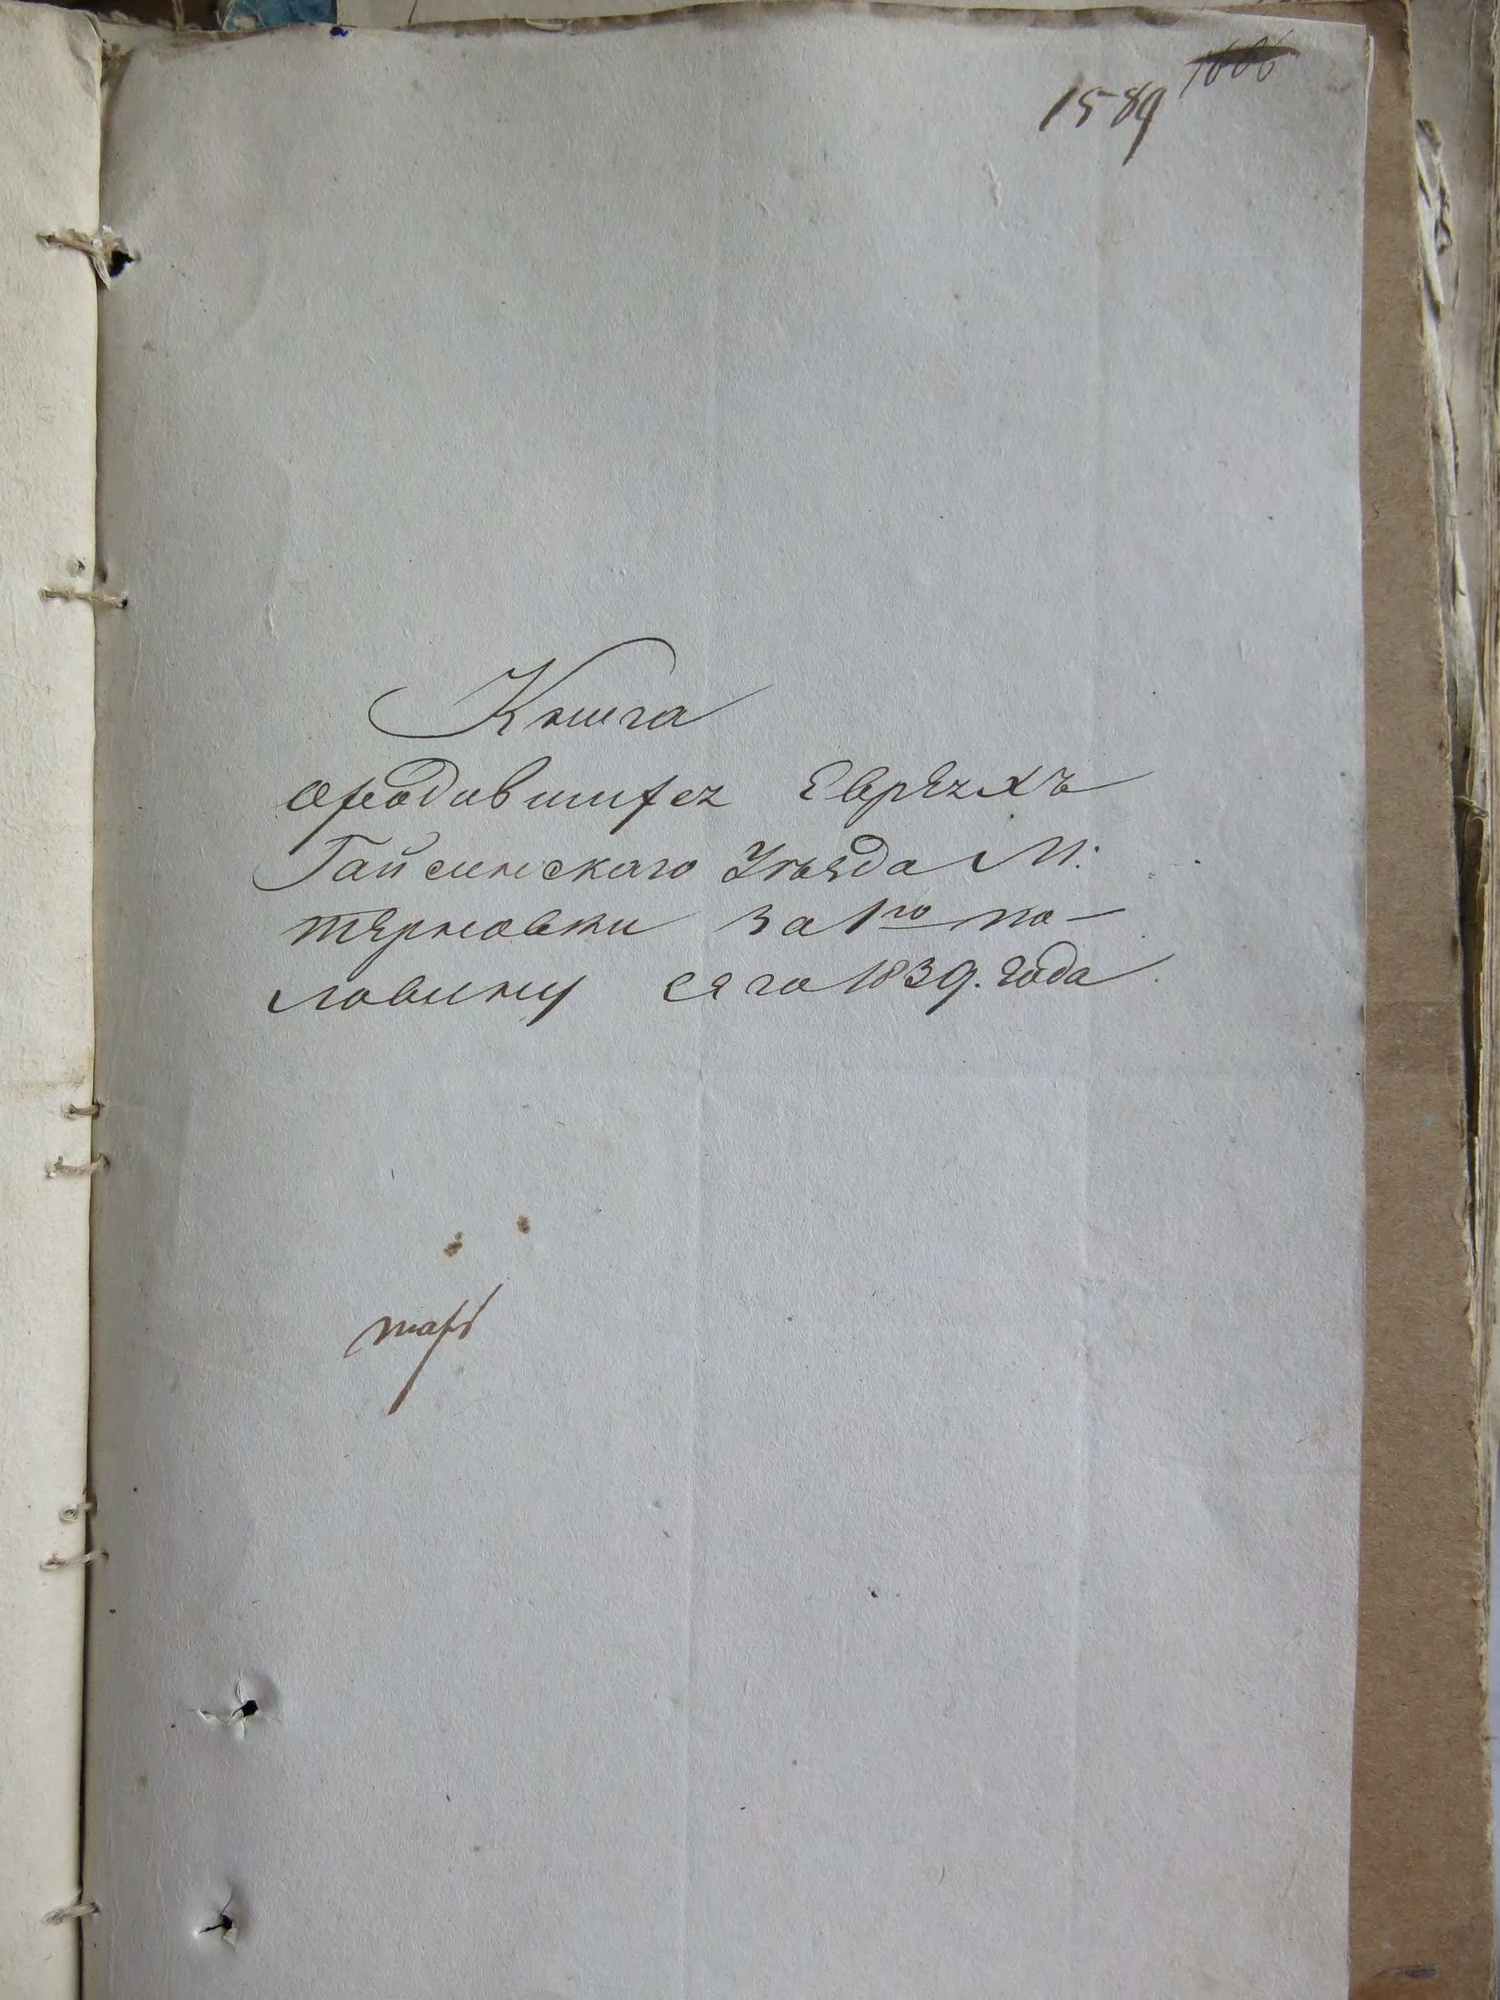 1589 1606
Книга
ородившихся Евреяхъ
Гайсинскаго Уѣзда М:
терновки за 1ю по-
ловину сего 1839. года